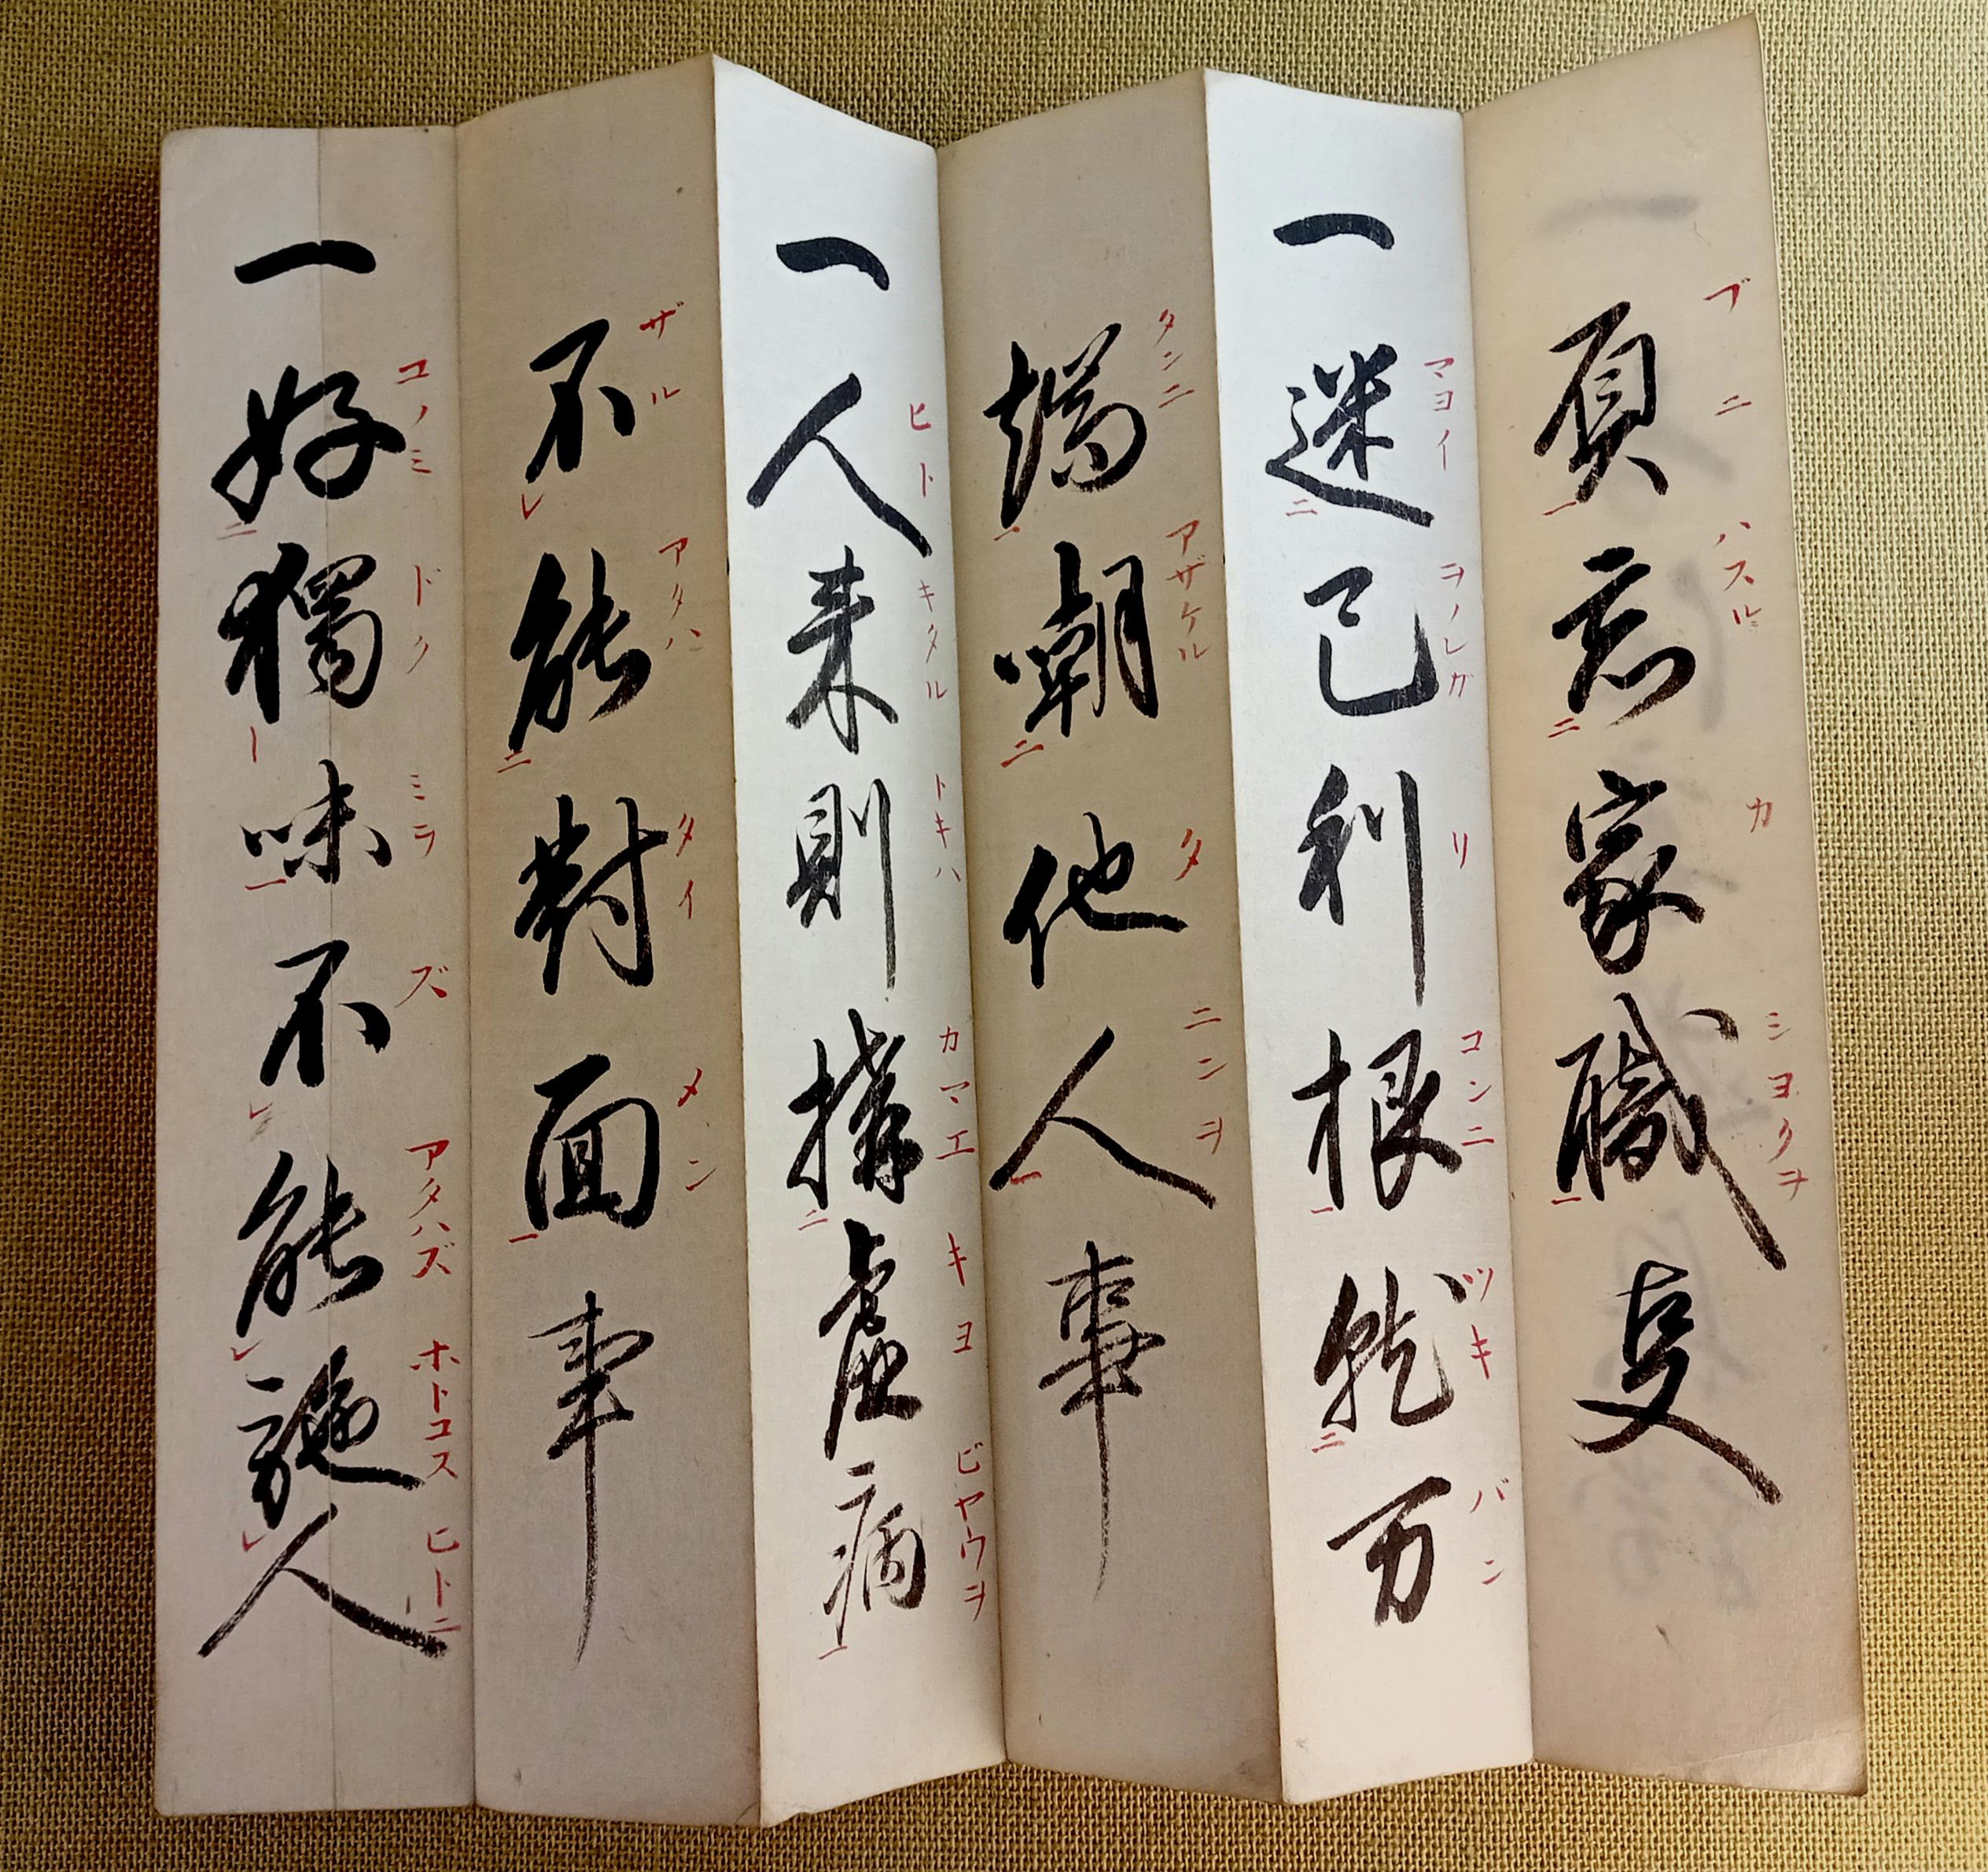 負忘家職叓
ブニ ハスル カ シヨクヲ
一迷己利根就万
マヨイ ヲノレガ リ コンニ ツキ バン
端嘲他人事
タンニ アザケル タ ニンヲ
一人来則構虚病
ヒト キタル トキハ カマエ キヨ ビヤウヲ
不能對面事
ザル アタハ タイ メン
一好獨味不能施人
コノミ ドク ミヲ ズ アタハズ ホトコス ヒトニ